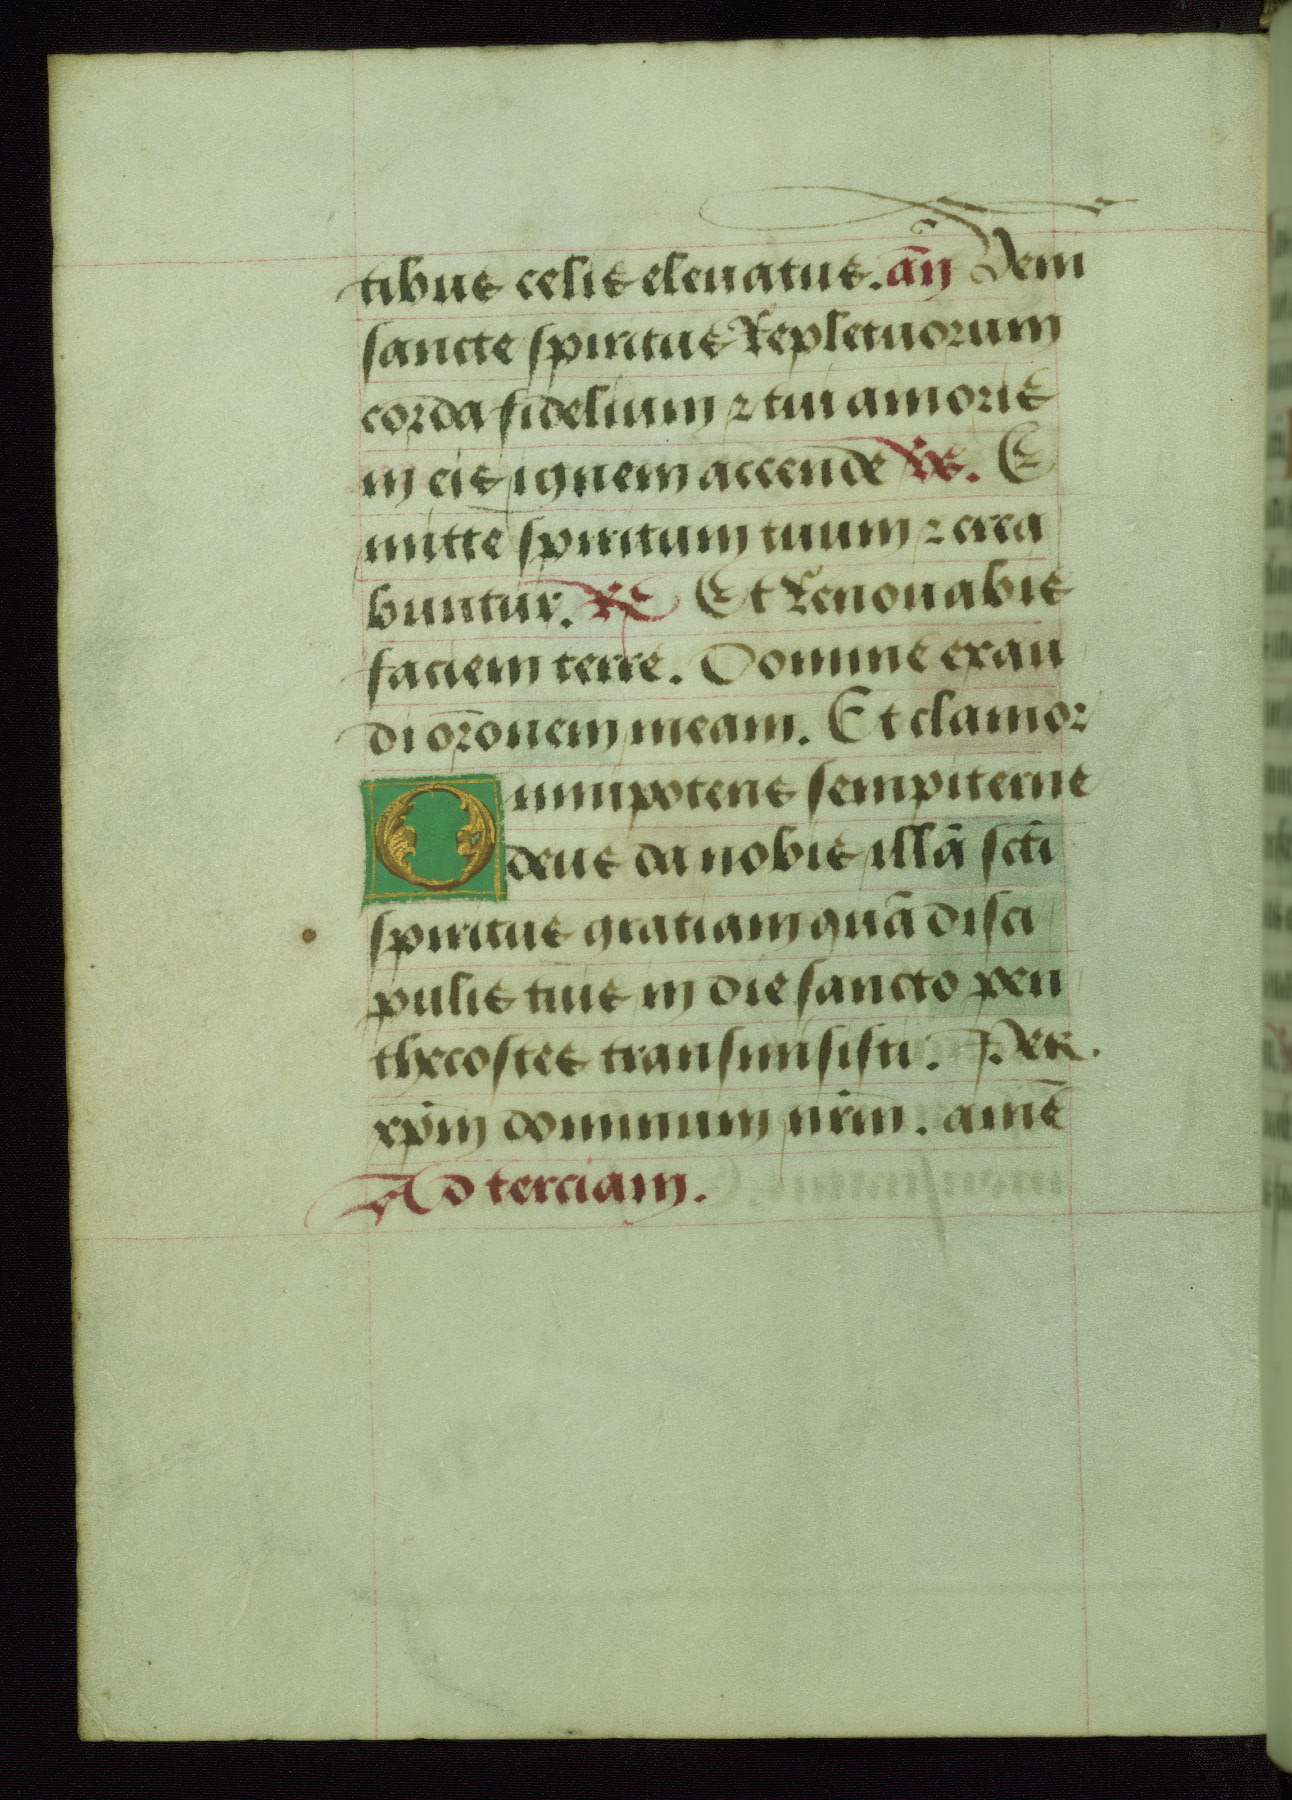 tibus celis eleuatus. añ Veni
sancte spiritus Reple tuorum
corda fidelium ⁊ tui amoris
in eis ignem accende ℣. E
mitte spiritum tuum ⁊ crea
buntur. ℟ Et Renouabis
faciem terre. Domine exau
di orōnem meam. Et clamor
Omnipotens sempiterne
deus da nobis illā scti
spiritus gratiam quā disci
pulis tuis in die sancto pen
thecostes transmisisti. Per.
xpm̄ dominum nrm̄. amē
Ad terciam.